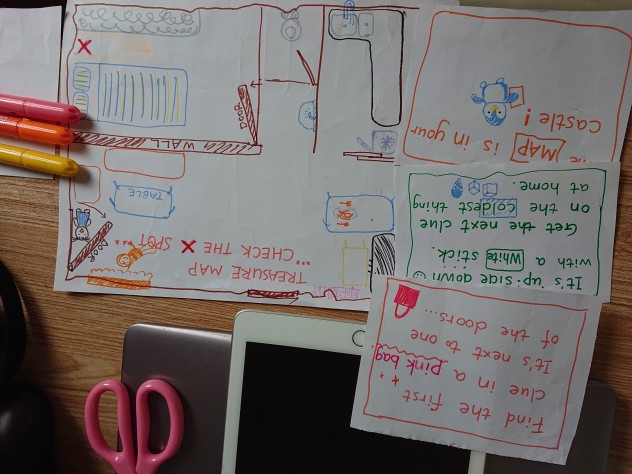 Find the first
clue in a pink bag
It's next to one
of the doors...
It's up-side down
with a White stick.
Get the next clue
on the coldest thing
at home.
MAP is in your
castle!
TREASURE MAP
...CHECK THE
X SPOT...
TABLE
WALL
DOOR